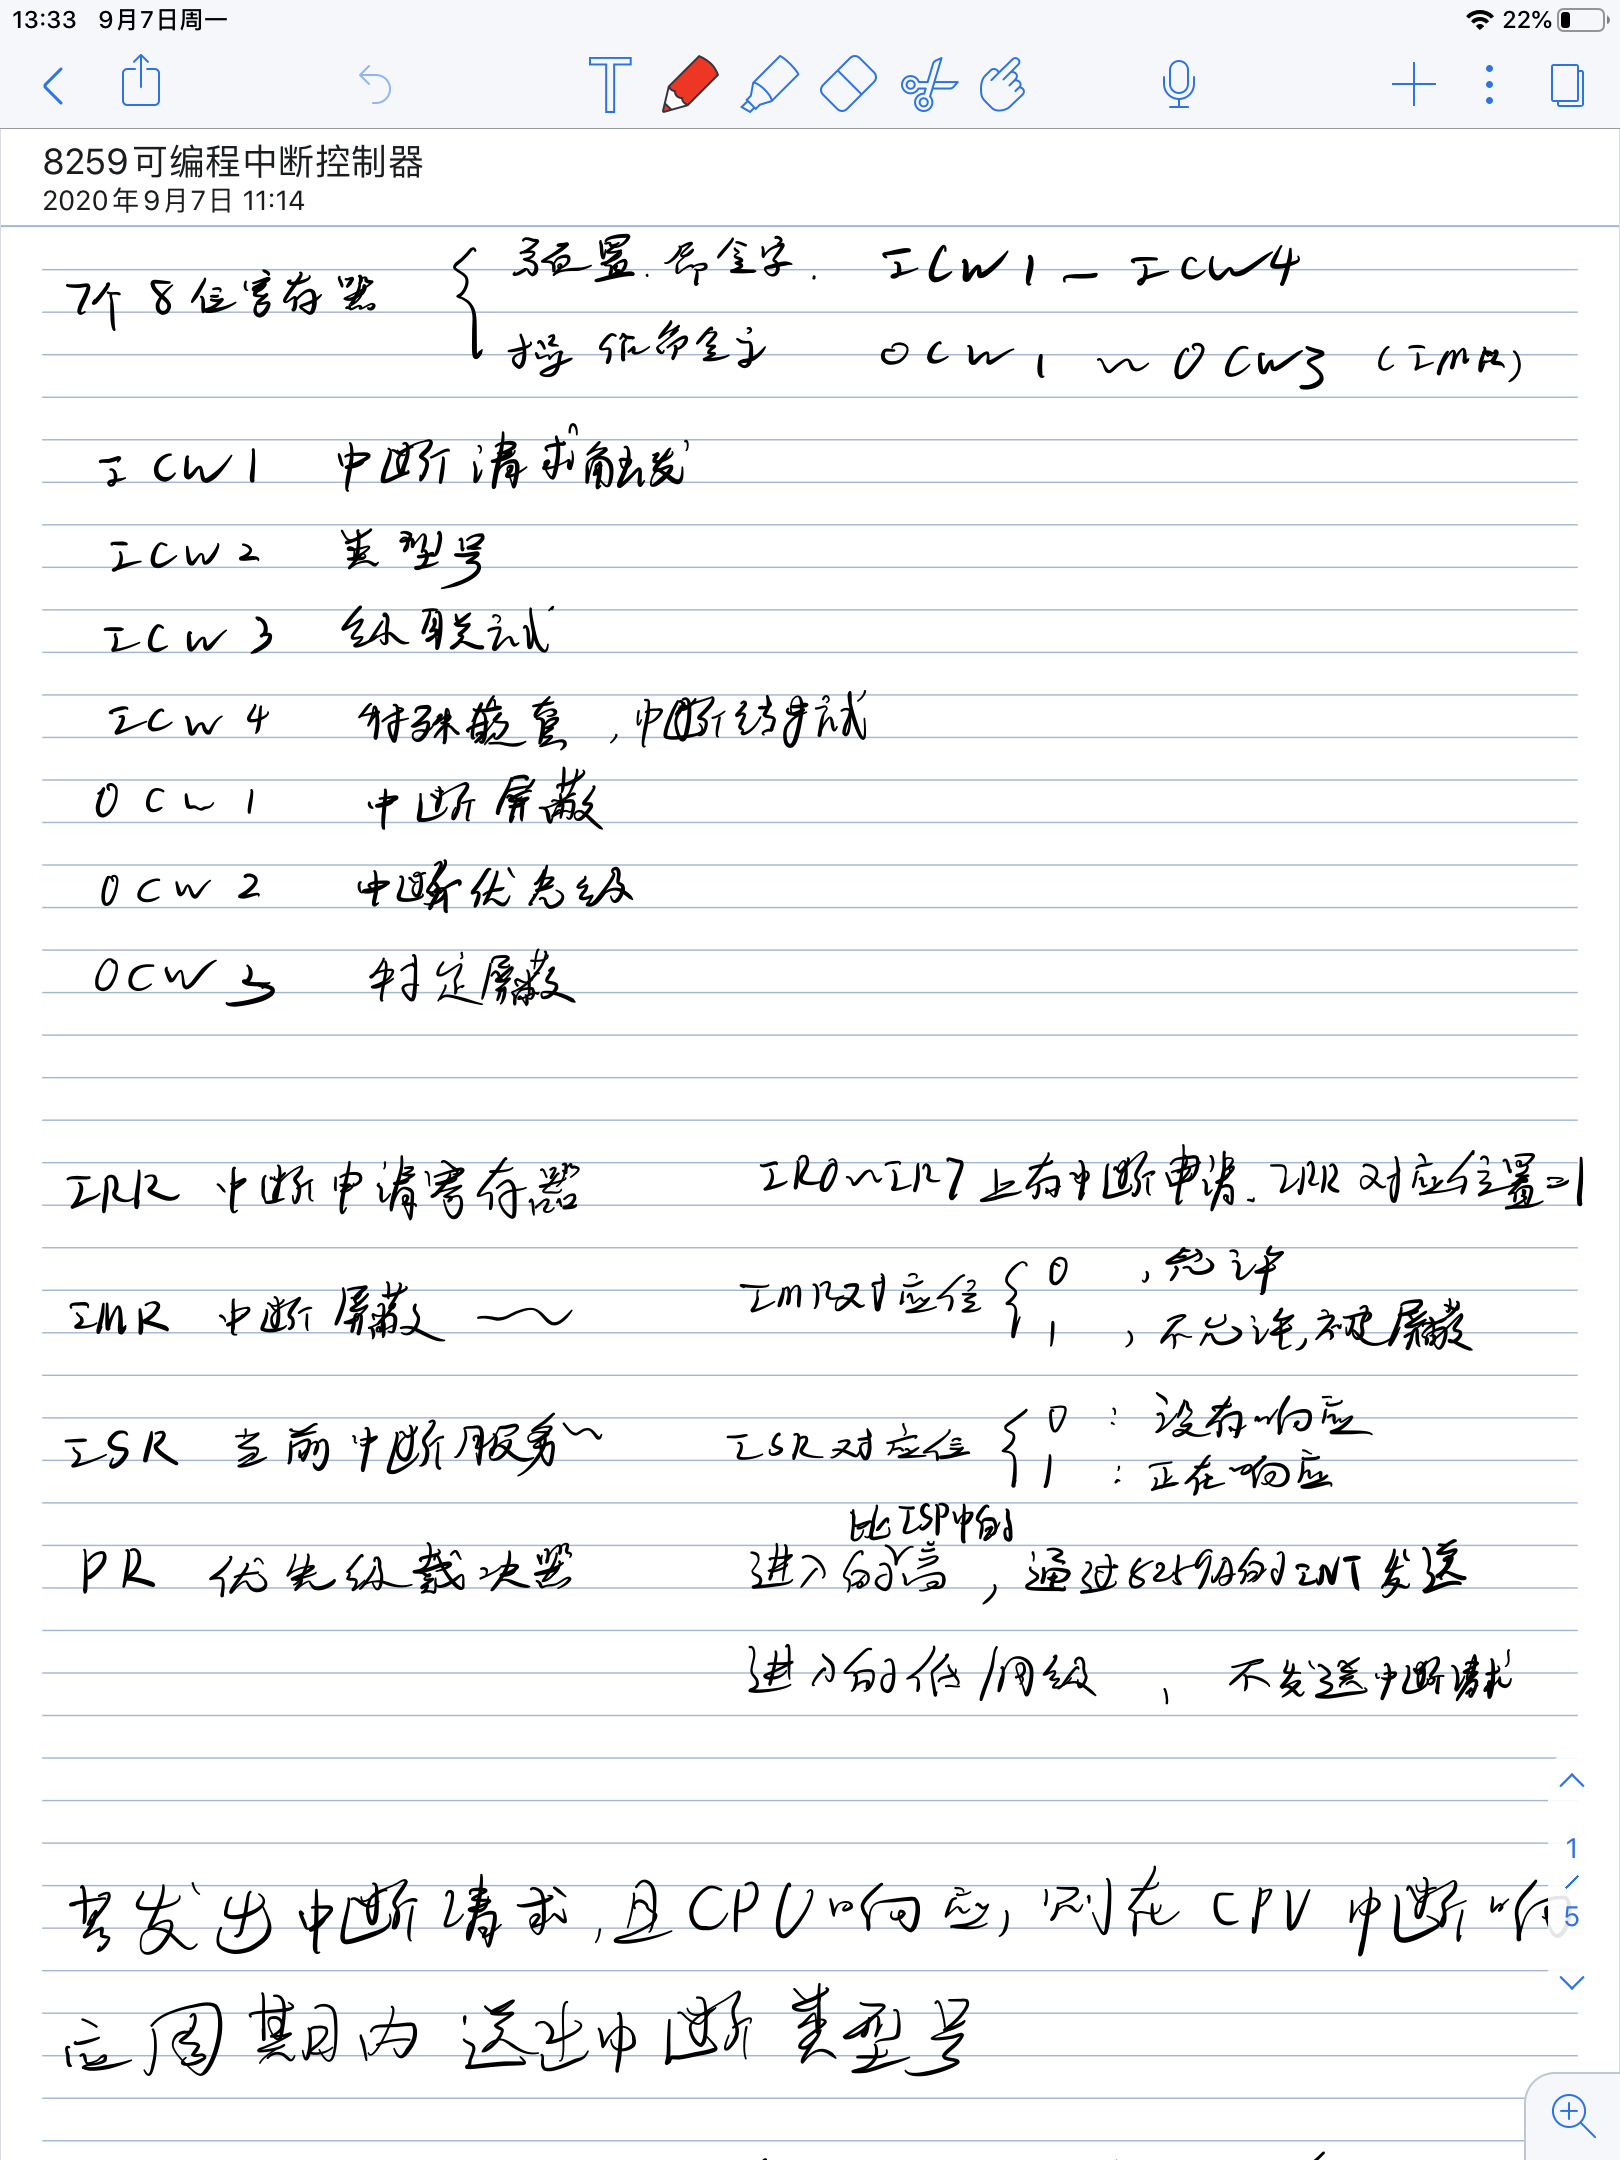 13:33 9月7日周一 22%
8259可编程中断控制器
2020年9月7日 11:14
7个8位寄存器
预置命令字. ICW1 — ICW4
操作命令字 OCW1 ~ OCW3 (IMR)
ICW1 中断请求触发
ICW2 类型号
ICW3 级联方式
ICW4 特殊嵌套,中断结束方式
OCW1 中断屏蔽
OCW2 中断优先级
OCW3 特定屏蔽
IRR 中断申请寄存器 IR0~IR7上有中断申请.IRR对应位置=1
IMR 中断屏蔽~ IMR对应位 0 ,允许
1 ,不允许,被屏蔽
ISR 当前中断服务~ ISR对应位 0 :没有响应
1 :正在响应
比ISR中的
PR 优先级裁决器 进入的高,通过8259A的INT发送
进入的低/同级 ,不发送中断请求
若发出中断请求,且CPU响应,则在CPU中断响
应周期内送出中断类型号
1
5